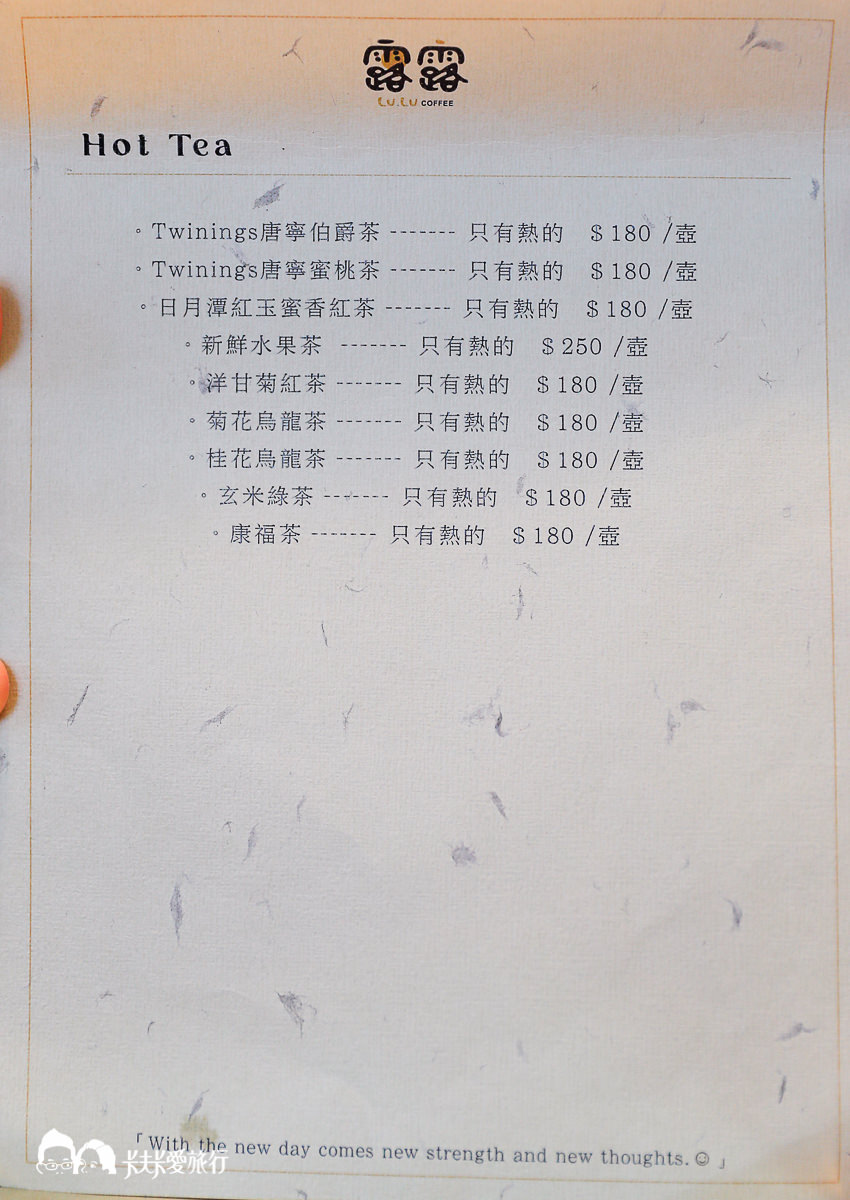 露露
LU.LU COFFEE
Hot Tea
◦ Twinings唐寧伯爵茶 ------- 只有熱的 $180 /壺
◦ Twinings唐寧蜜桃茶 ------- 只有熱的 $180 /壺
◦ 日月潭紅玉蜜香紅茶 ------- 只有熱的 $180 /壺
◦ 新鮮水果茶 ------- 只有熱的 $250 /壺
◦ 洋甘菊紅茶 ------- 只有熱的 $180 /壺
◦ 菊花烏龍茶 ------- 只有熱的 $180 /壺
◦ 桂花烏龍茶 ------- 只有熱的 $180 /壺
◦ 玄米綠茶 ------- 只有熱的 $180 /壺
◦ 康福茶 ------- 只有熱的 $180 /壺
「With the new day comes new strength and new thoughts.☺」
卡夫卡愛旅行